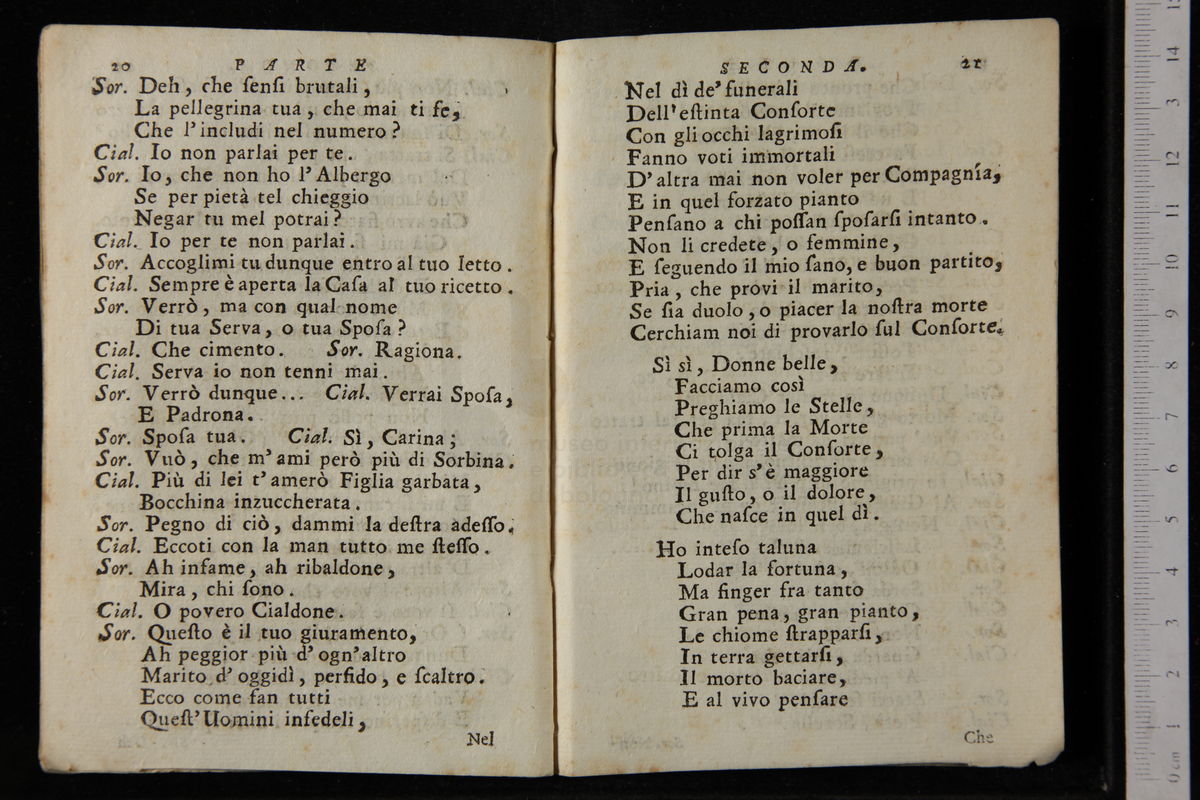 20 PARTE
Sor. Deh, che ſenſi brutali,
La pellegrina tua, che mai ti fe,
Che l'includi nel numero?
Cial. Io non parlai per te.
Sor. Io, che non ho l'Albergo
Se per pietà tel chieggio
Negar tu mel potrai?
Cial. Io per te non parlai.
Sor. Accoglimi tu dunque entro al tuo letto.
Cial. Sempre è aperta la Caſa al tuo ricetto.
Sor. Verrò, ma con qual nome
Di tua Serva, o tua Spoſa?
Cial. Che cimento. Sor. Ragiona.
Cial. Serva io non tenni mai.
Sor. Verrò dunque... Cial. Verrai Spoſa,
E Padrona.
Sor. Spoſa tua. Cial. Sì, Carina;
Sor. Vuò, che m'ami però più di Sorbina.
Cial. Più di lei t'amerò Figlia garbata,
Bocchina inzuccherata.
Sor. Pegno di ciò, dammi la deſtra adeſſo.
Cial. Eccoti con la man tutto me ſteſſo.
Sor. Ah infame, ah ribaldone,
Mira, chi ſono.
Cial. O povero Cialdone.
Sor. Queſto è il tuo giuramento,
Ah peggior più d'ogn'altro
Marito d'oggidì, perfido, e ſcaltro.
Ecco come fan tutti
Queſt'Uomini infedeli,
Nel
SECONDA. 21
Nel dì de' funerali
Dell'eſtinta Conſorte
Con gli occhi lagrimoſi
Fanno voti immortali
D'altra mai non voler per Compagnía,
E in quel forzato pianto
Penſano a chi poſſan ſpoſarſi intanto.
Non li credete, o femmine,
E ſeguendo il mio ſano, e buon partito,
Pria, che provi il marito,
Se ſia duolo, o piacer la noſtra morte
Cerchiam noi di provarlo ſul Conſorte.
Sì sì, Donne belle,
Facciamo così
Preghiamo le Stelle,
Che prima la Morte
Ci tolga il Conſorte,
Per dir s'è maggiore
Il guſto, o il dolore,
Che naſce in quel dì.
Ho inteſo taluna
Lodar la fortuna,
Ma finger fra tanto
Gran pena, gran pianto,
Le chiome ſtrapparſi,
In terra gettarſi,
Il morto baciare,
E al vivo penſare
Che